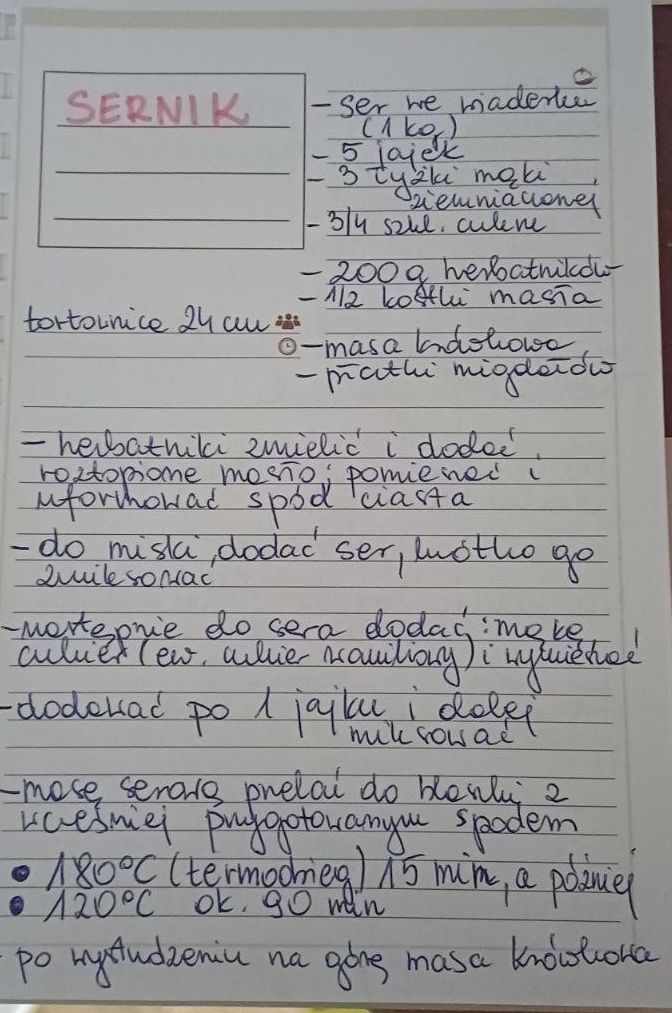 SERNIK
- ser we wiaderku
(1 kg)
- 5 jajek
- 3 łyżki mąki
ziemniaczanej
- 3/4 szkl. cukru
- 200 g herbatników
- 1/2 kostki masła
tortownica 24 cm
- masa krówkowa
- płatki migdałów
- herbatniki zmielić i dodać
roztopione masło; pomieszać i
uformować spód ciasta
- do miski, dodać ser, krótko go
zmiksować
- następnie do sera dodać: mąkę,
cukier (ew. cukier waniliowy) i wymieszać
- dodawać po 1 jajku i dalej
miksować
- masę serową przelać do blaszki z
wcześniej przygotowanym spodem
• 180°C (termoobieg) 15 min, a później
• 120°C ok. 90 min
po wystudzeniu na górę masa krówkowa